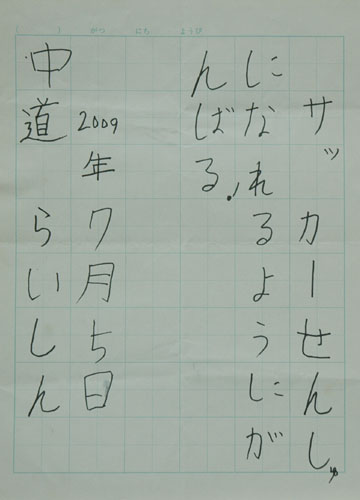 (　　) がつ にち ようび
サッカーせんしゅ
になれるようにが
んばる!
2009年7月5日
中道 らいしん